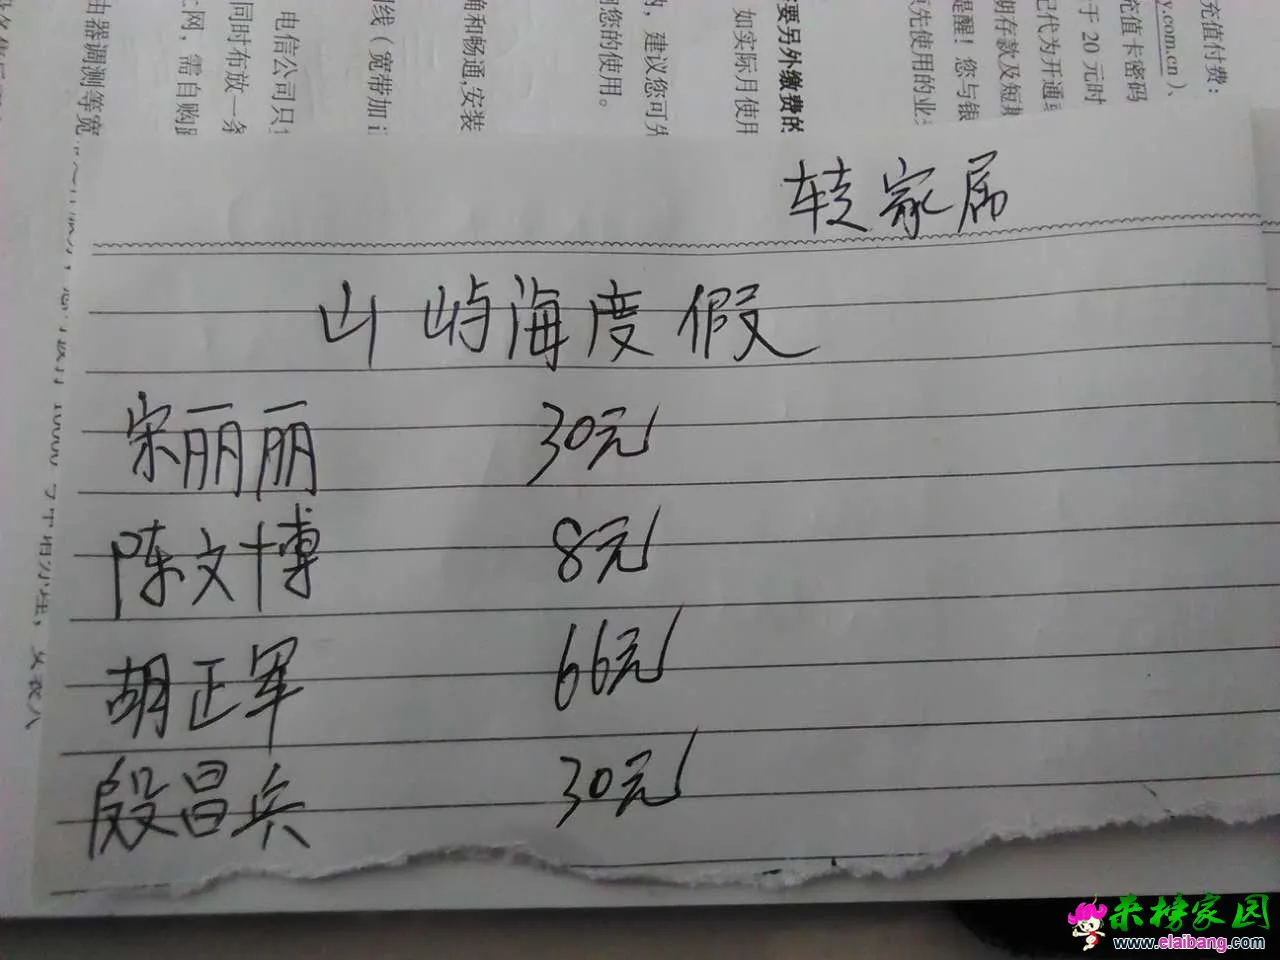 充值付费：
y.com.cn）、
充值卡密码
于 20 元时
记代为开通
期存款及短
提醒！您与银
先使用的业
要另外缴费的
如实际月使用
内，建议您可
您的使用。
确和畅通,安装
线（宽带加
电信公司只
同时布放一条
网，需自购
由器调测等宽
转家属
山屿海度假
宋丽丽 30元
陈文博 8元
胡正军 66元
殷昌兵 30元
来榜家园
www.elaibang.com